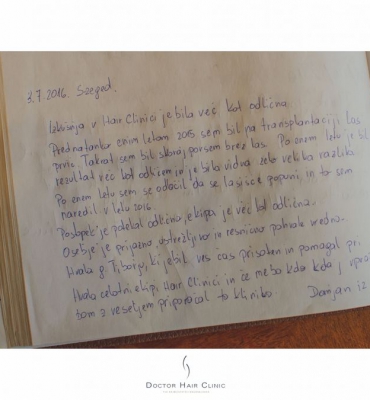 3.7.2016. Szeged.
Izkušnja v Hair Clinici je bila več kot odlična.
Pred natanko enim letom 2015 sem bil na transplantaciji las
prvič. Takrat sem bil skoraj povsem brez las. Po enem letu je bil
rezultat več kot odličen in je bila vidna zelo velika razlika.
Po enem letu sem se odločil da se lasišče popolni, in to sem
naredil v letu 2016.
Postopek je potekal odlično, ekipa je več kot odlična.
Osebje je prijazno, ustrežljivo in resnično pohvale vredno.
Hvala g. Tiborju, ki je bil ves čas prisoten in pomagal pri
Hvala celotni ekipi Hair Clinici in če me bo kdo kdaj vpraš
tam z veseljem priporočal to kliniko. Damjan iz
DOCTOR HAIR CLINIC